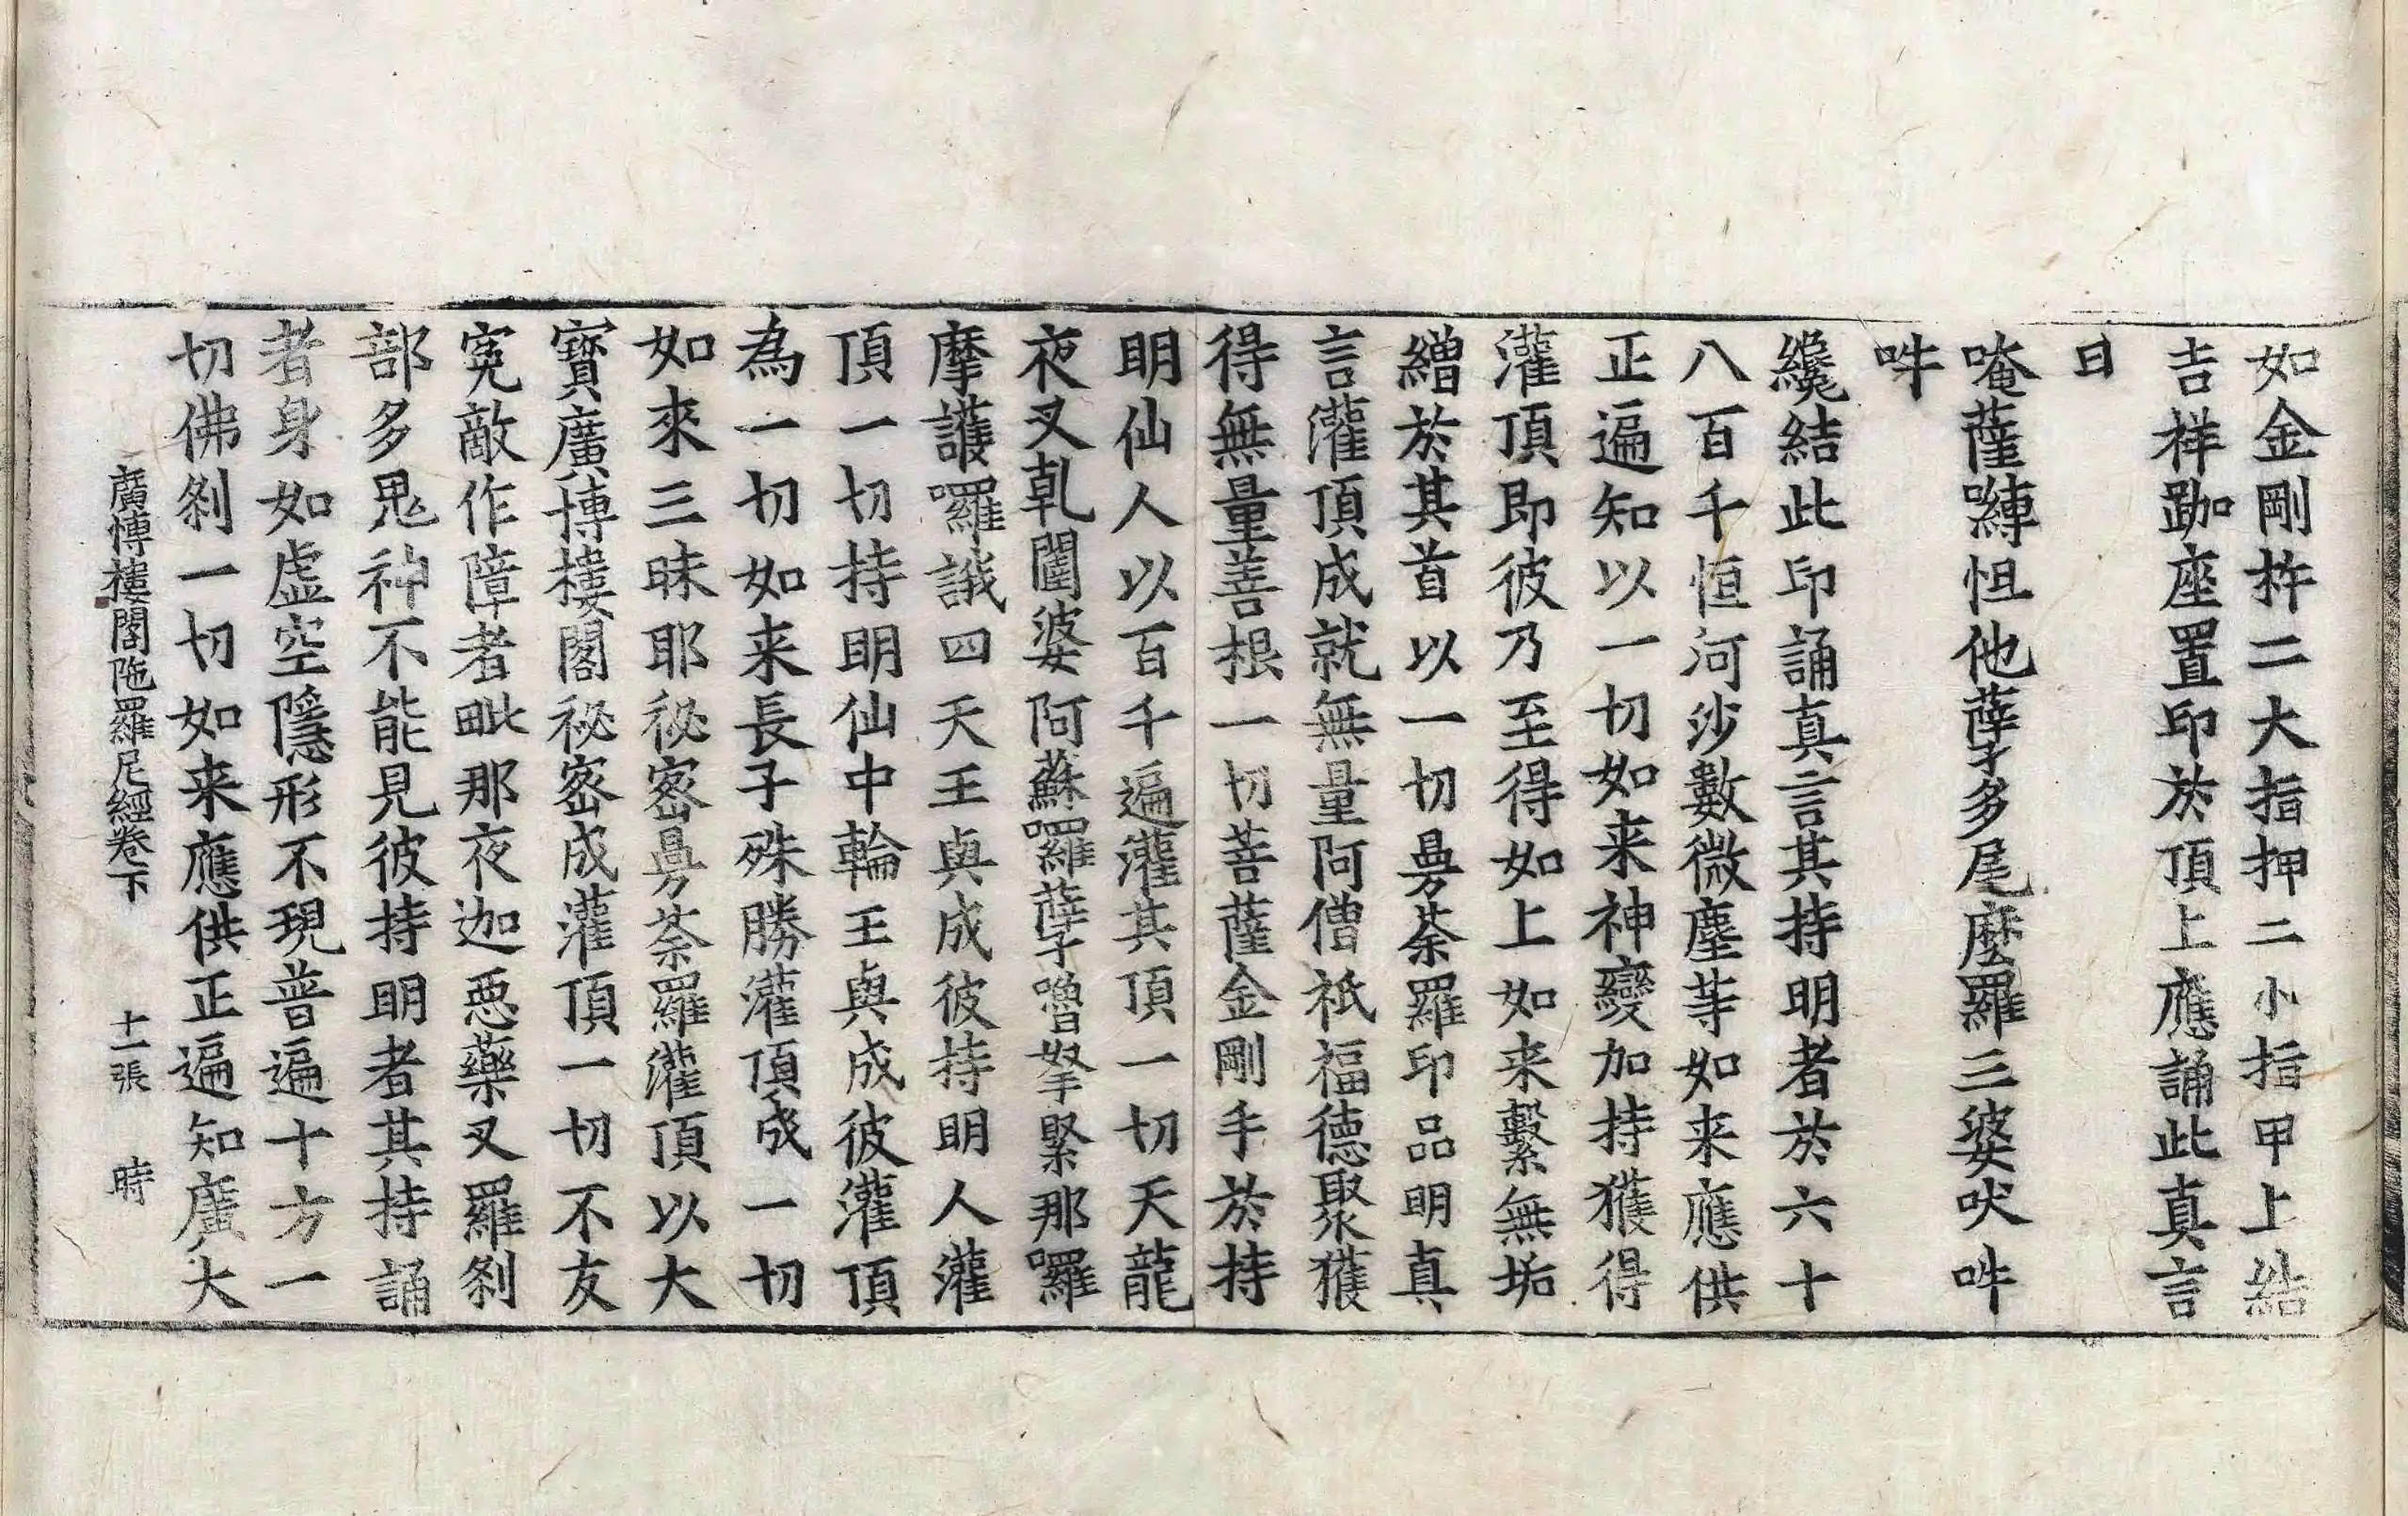 如金剛杵二大指押二小指甲上結
吉祥跏座置印於頂上應誦此真言
曰
唵薩嚩怛他櫱多尾麼羅三婆吠吽
吽
纔結此印誦真言其持明者於六十
八百千恒河沙數微塵等如来應供
正遍知以一切如来神變加持獲得
灌頂即彼乃至得如上如来繫無垢
繒於其首以一切曼荼羅印品明真
言灌頂成就無量阿僧祇福德聚獲
得無量善根一切菩薩金剛手於持
明仙人以百千遍灌其頂一切天龍
夜叉乹闥婆阿蘇囉孽嚕拏緊那囉
摩護囉誐四天王與成彼持明人灌
頂一切持明仙中輪王與成彼灌頂
為一切如来長子殊勝灌頂成一切
如來三昧耶祕密曼荼羅灌頂以大
寶廣博樓閣祕密成灌頂一切不友
寃敵作障者毗那夜迦惡藥叉羅剎
部多鬼神不能見彼持明者其持誦
者身如虛空隱形不現普遍十方一
切佛剎一切如来應供正遍知廣大
廣博樓閣陁羅尼經卷下 十一張 時